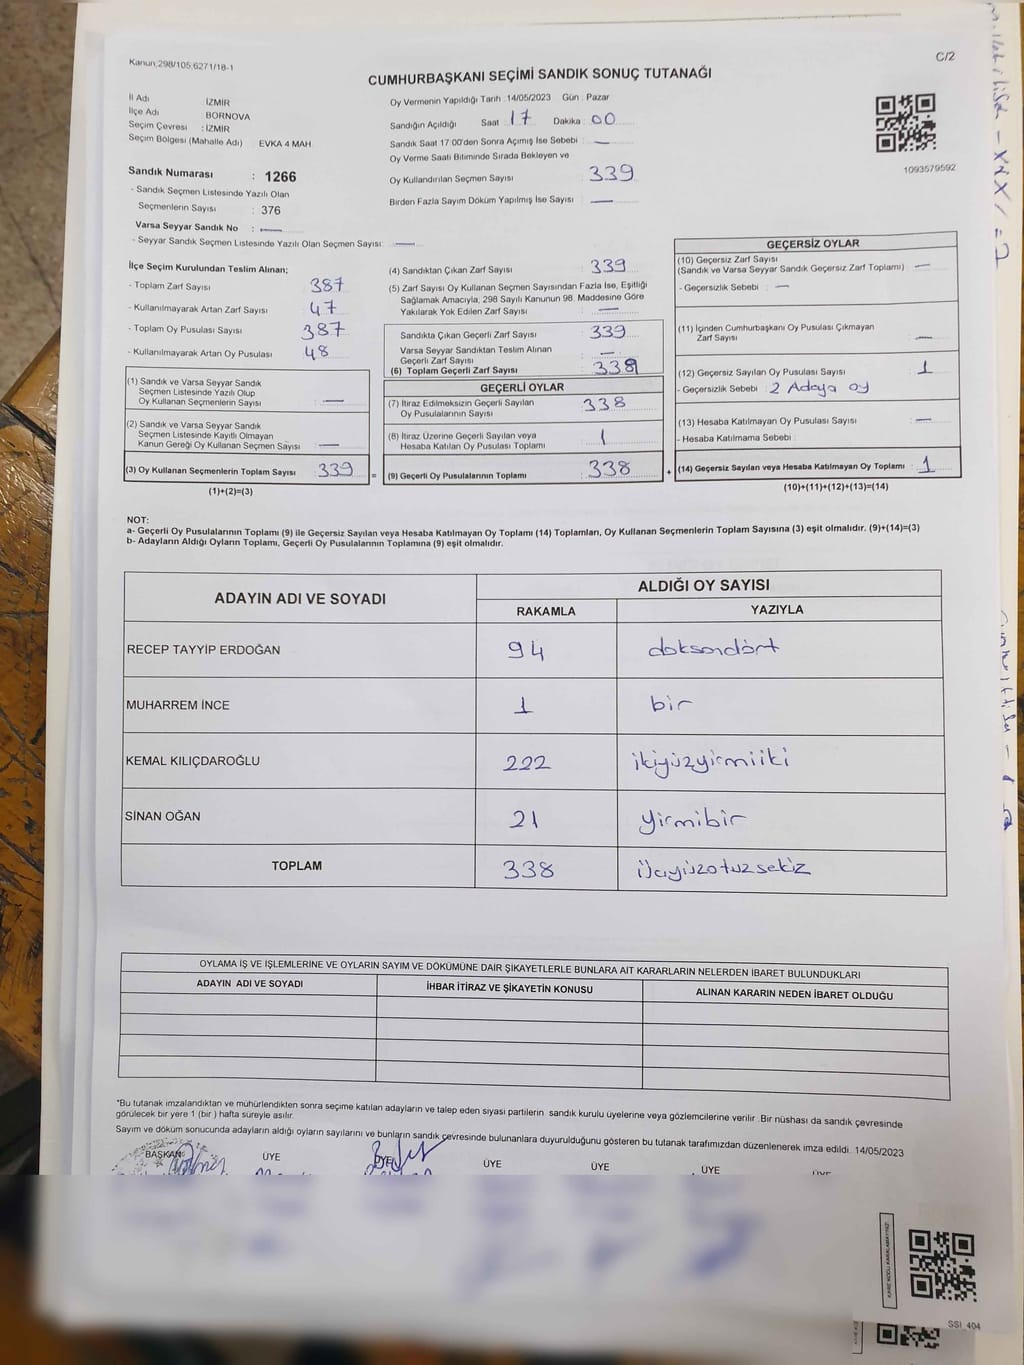 Kanun;298/105,6271/18-1
C/2
CUMHURBAŞKANI SEÇİMİ SANDIK SONUÇ TUTANAĞI
İl Adı İZMİR
İlçe Adı BORNOVA
Seçim Çevresi : İZMİR
Seçim Bölgesi (Mahalle Adı) EVKA 4 MAH.
Oy Vermenin Yapıldığı Tarih :14/05/2023 Gün : Pazar
Sandığın Açıldığı Saat 17 Dakika : 00
Sandık Saat 17:00'den Sonra Açımış İse Sebebi : —
Oy Verme Saati Bitiminde Sırada Bekleyen ve
Oy Kullandırılan Seçmen Sayısı : 339
Birden Fazla Sayım Döküm Yapılmış İse Sayısı : —
1093579592
Sandık Numarası : 1266
- Sandık Seçmen Listesinde Yazılı Olan
Seçmenlerin Sayısı : 376
Varsa Seyyar Sandık No : —
- Seyyar Sandık Seçmen Listesinde Yazılı Olan Seçmen Sayısı: —
İlçe Seçim Kurulundan Teslim Alınan;
- Toplam Zarf Sayısı 387
- Kullanılmayarak Artan Zarf Sayısı : 47
- Toplam Oy Pusulası Sayısı : 387
- Kullanılmayarak Artan Oy Pusulası : 48
(1) Sandık ve Varsa Seyyar Sandık
Seçmen Listesinde Yazılı Olup
Oy Kullanan Seçmenlerin Sayısı : —
(2) Sandık ve Varsa Seyyar Sandık
Seçmen Listesinde Kayıtlı Olmayan
Kanun Gereği Oy Kullanan Seçmen Sayısı : —
(3) Oy Kullanan Seçmenlerin Toplam Sayısı : 339 =
(1)+(2)=(3)
(4) Sandıktan Çıkan Zarf Sayısı : 339
(5) Zarf Sayısı Oy Kullanan Seçmen Sayısından Fazla İse, Eşitliği
Sağlamak Amacıyla, 298 Sayılı Kanunun 98. Maddesine Göre
Yakılarak Yok Edilen Zarf Sayısı : —
Sandıkta Çıkan Geçerli Zarf Sayısı : 339
Varsa Seyyar Sandıktan Teslim Alınan
Geçerli Zarf Sayısı : —
(6) Toplam Geçerli Zarf Sayısı : 338
GEÇERLİ OYLAR
(7) İtiraz Edilmeksizin Geçerli Sayılan
Oy Pusulalarının Sayısı : 338
(8) İtiraz Üzerine Geçerli Sayılan veya
Hesaba Katılan Oy Pusulası Toplamı : 1
(9) Geçerli Oy Pusulalarının Toplamı : 338 +
GEÇERSİZ OYLAR
(10) Geçersiz Zarf Sayısı
(Sandık ve Varsa Seyyar Sandık Geçersiz Zarf Toplamı) : —
- Geçersizlik Sebebi : —
(11) İçinden Cumhurbaşkanı Oy Pusulası Çıkmayan
Zarf Sayısı : —
(12) Geçersiz Sayılan Oy Pusulası Sayısı : 1
- Geçersizlik Sebebi : 2 Adaya oy
(13) Hesaba Katılmayan Oy Pusulası Sayısı : —
- Hesaba Katılmama Sebebi :
(14) Geçersiz Sayılan veya Hesaba Katılmayan Oy Toplamı : 1
(10)+(11)+(12)+(13)=(14)
NOT:
a- Geçerli Oy Pusulalarının Toplamı (9) ile Geçersiz Sayılan veya Hesaba Katılmayan Oy Toplamı (14) Toplamları, Oy Kullanan Seçmenlerin Toplam Sayısına (3) eşit olmalıdır. (9)+(14)=(3)
b- Adayların Aldığı Oyların Toplamı, Geçerli Oy Pusulalarının Toplamına (9) eşit olmalıdır.
ADAYIN ADI VE SOYADI ALDIĞI OY SAYISI
RAKAMLA YAZIYLA
RECEP TAYYİP ERDOĞAN 94 doksandört
MUHARREM İNCE 1 bir
KEMAL KILIÇDAROĞLU 222 ikiyüzyirmiiki
SİNAN OĞAN 21 yirmibir
TOPLAM 338
OYLAMA İŞ VE İŞLEMLERİNE VE OYLARIN SAYIM VE DÖKÜMÜNE DAİR ŞİKAYETLERLE BUNLARA AİT KARARLARIN NELERDEN İBARET BULUNDUKLARI
ADAYIN ADI VE SOYADI İHBAR İTİRAZ VE ŞİKAYETİN KONUSU ALINAN KARARIN NEDEN İBARET OLDUĞU
*Bu tutanak imzalandıktan ve mühürlendikten sonra seçime katılan adayların ve talep eden siyasi partilerin sandık kurulu üyelerine veya gözlemcilerine verilir .Bir nüshası da sandık çevresinde
görülecek bir yere 1 (bir ) hafta süreyle asılır.
Sayım ve döküm sonucunda adayların aldığı oyların sayılarını ve bunların sandık çevresinde bulunanlara duyurulduğunu gösteren bu tutanak tarafımızdan düzenlenerek imza edildi. 14/05/2023
BAŞKAN ÜYE ÜYE ÜYE ÜYE ÜYE
SSI_404